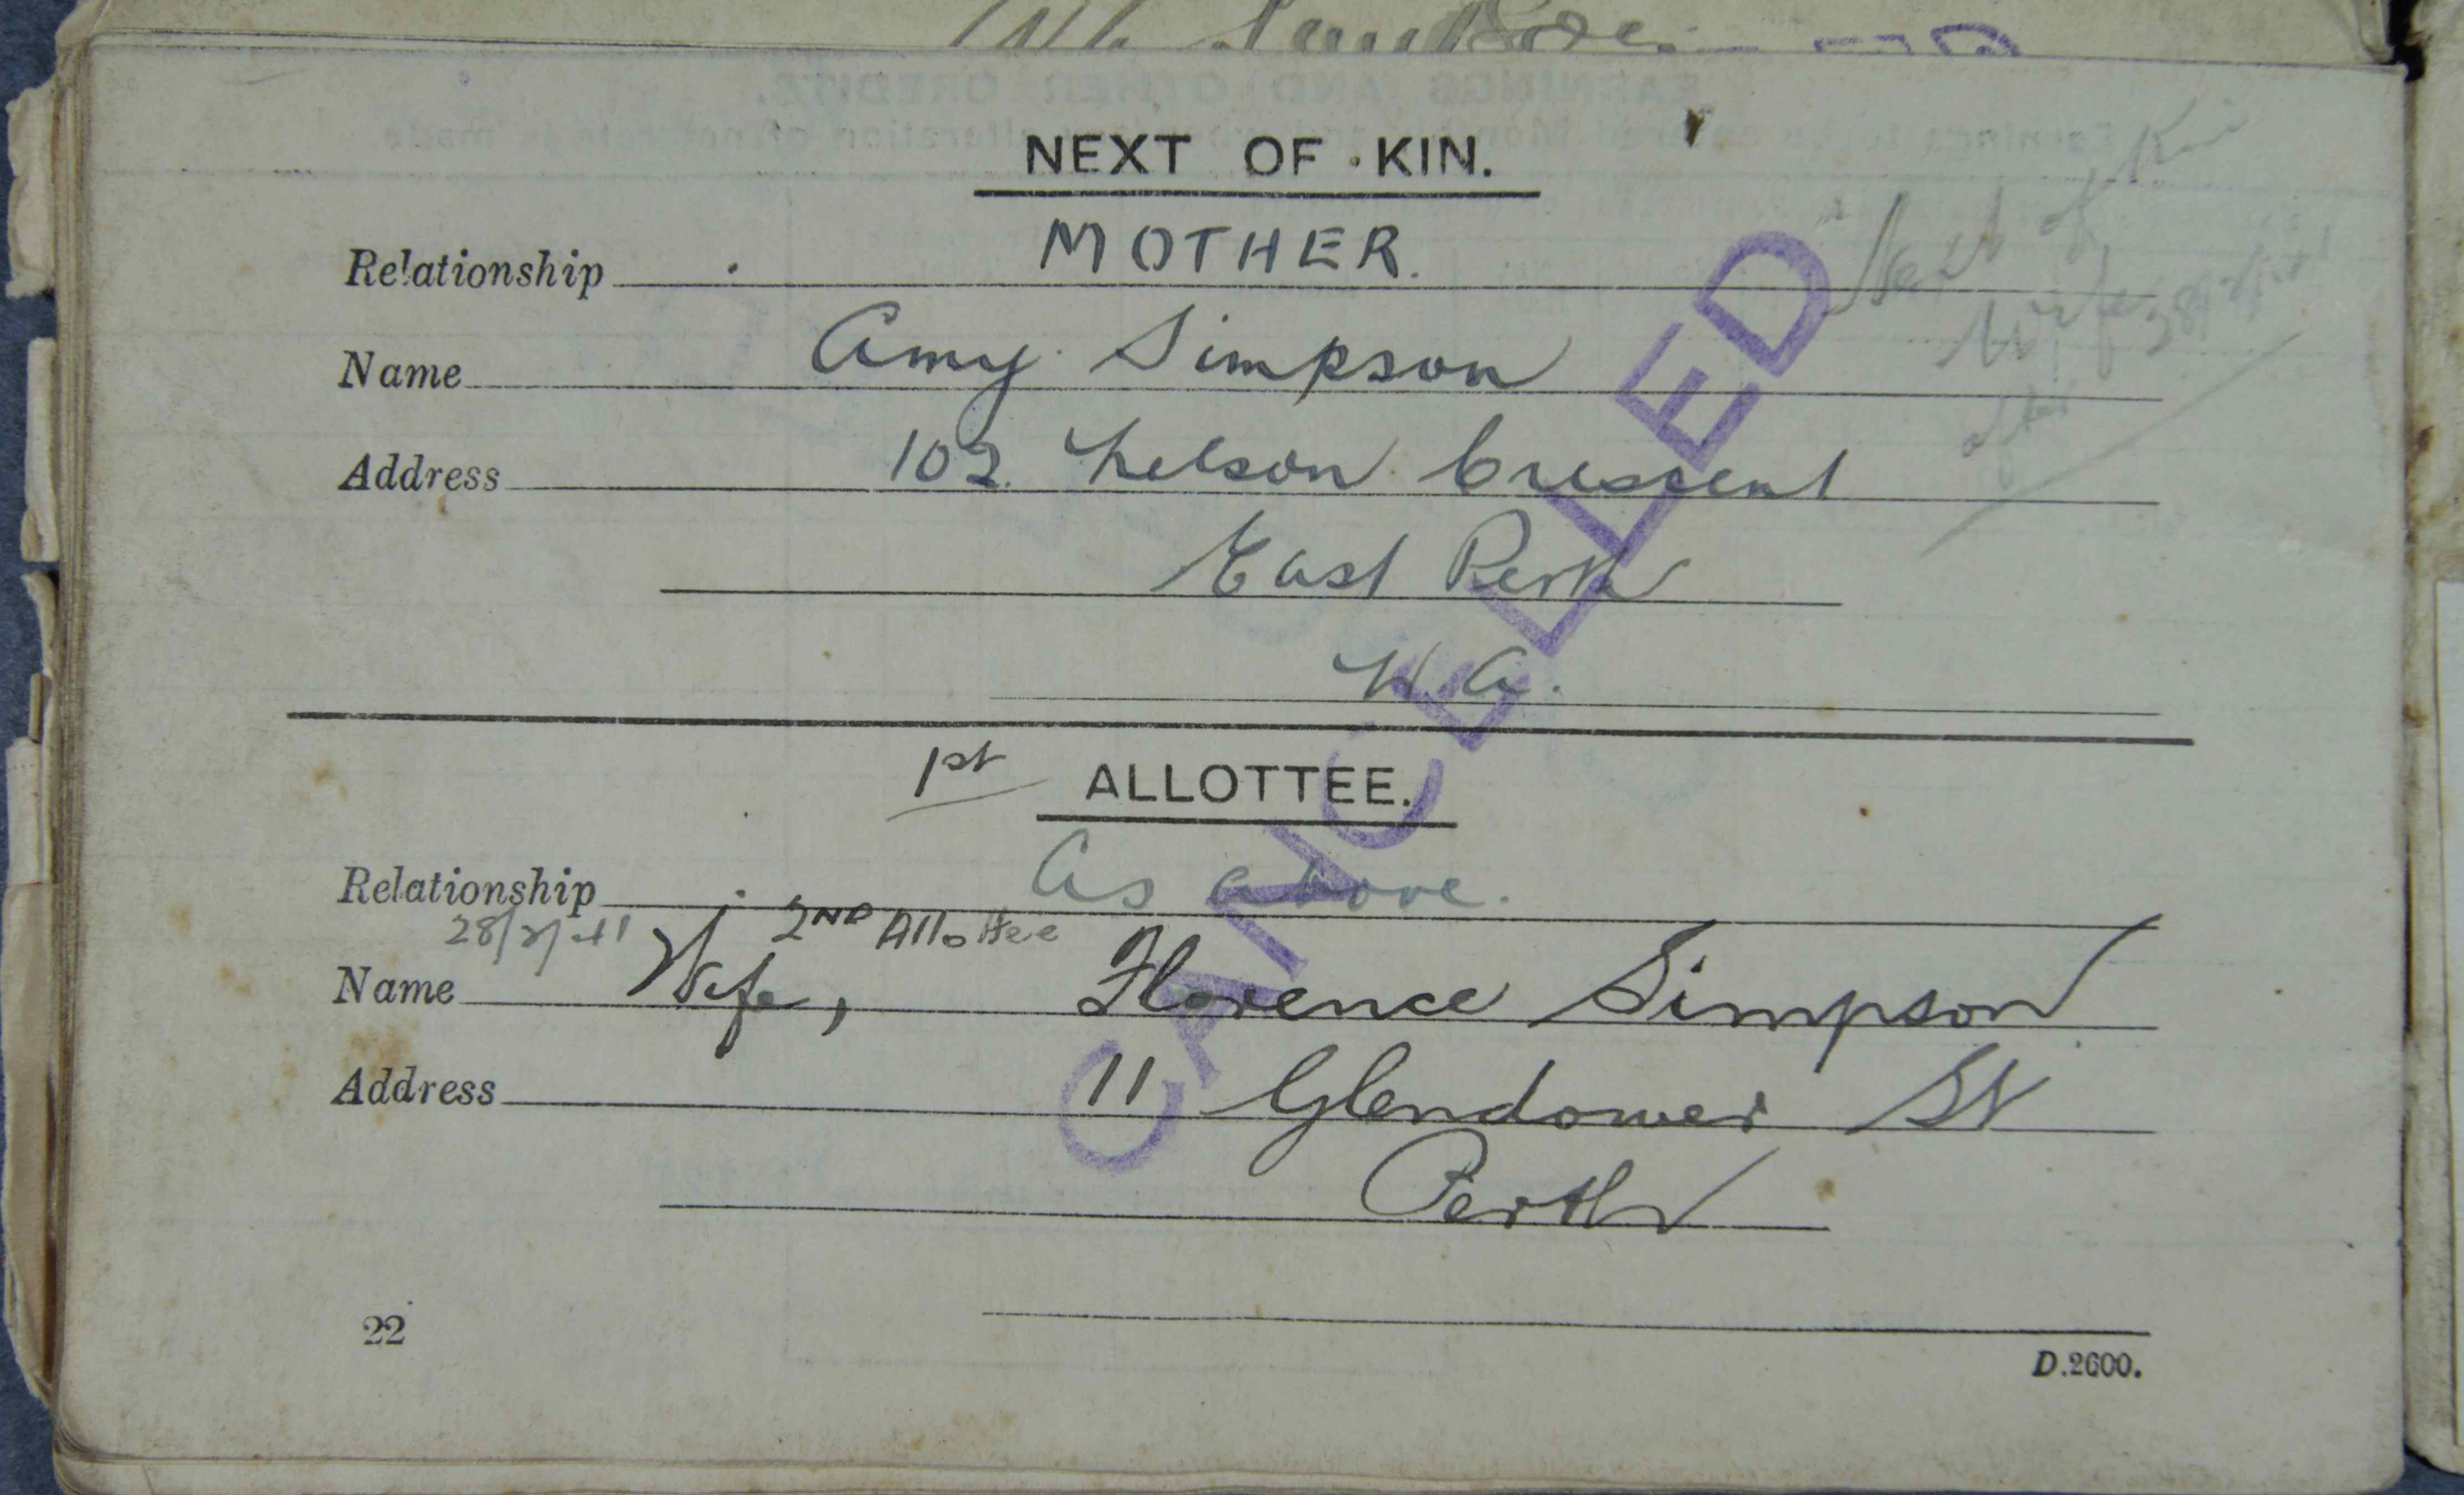 NEXT OF KIN.
Next of Kin
Relationship MOTHER.
Wife 28/2/41
after
Name Amy Simpson
Address 102. Nelson Crescent
East Perth
W.A.
CANCELLED
1st ALLOTTEE.
Relationship As above.
28/2/41 2ND Allottee
Name Wife, Florence Simpson
Address 11 Glendower St
Perth
22
D.2600.